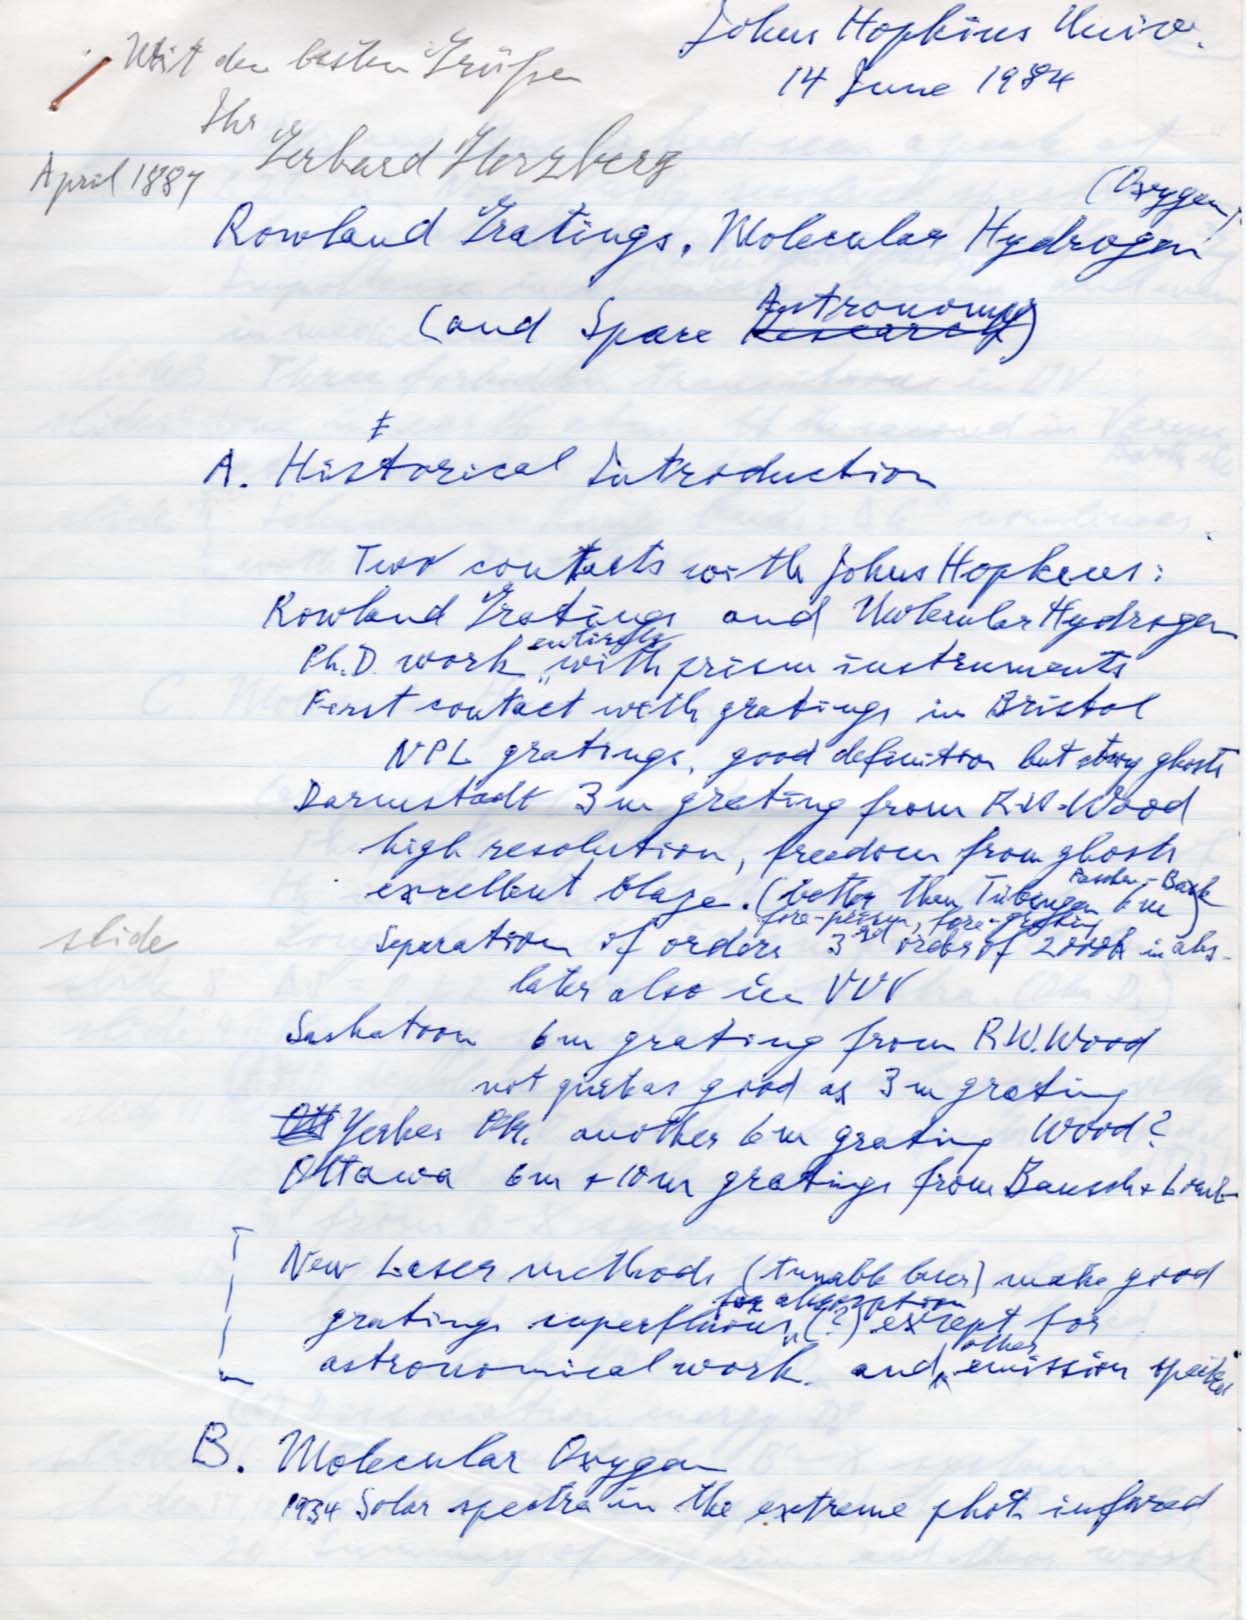 Johns Hopkins Univ.
14 June 1984
Mit den besten Grüßen
Ihr
Gerhard Herzberg
April 1887
Rowland Gratings, Molecular Hydrogen (Oxygen)
(and Space Research Astronomy)
A. Historical Introduction
Two contacts with Johns Hopkins:
Rowland Gratings and Molecular Hydrogen
Ph.D. work entirely with prism instruments
First contact with gratings in Bristol
NPL gratings, good definition but strong ghosts
Darmstadt 3 m grating from R.W. Wood
high resolution, freedom from ghosts
excellent blaze. (better than Tübingen Paschen-Back 6 m)
fore-prism, fore-grating
slide
Separation of orders 3rd order of 2000Å in abs.
later also in VUV
Saskatoon 6 m grating from R.W. Wood
not quite as good as 3 m grating
Ott Yerkes Ob. another 6 m grating Wood?
Ottawa 6 m + 10 m gratings from Bausch + Lomb
New Laser methods (tunable laser) make good
gratings superfluous for absorption (?) except for
astronomical work. and other emission spectra
B. Molecular Oxygen
1934 Solar spectra in the extreme phot. infrared